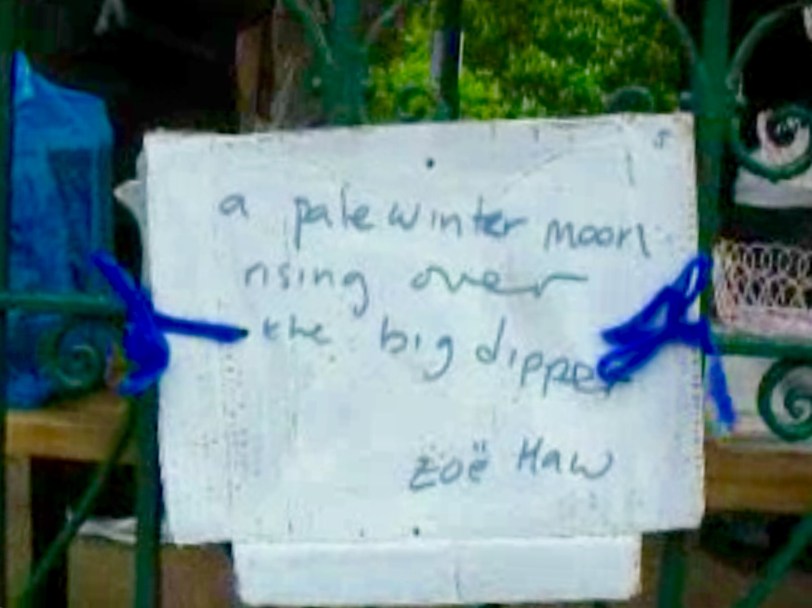 a pale winter moon
rising over
the big dipper
Zoë Haw